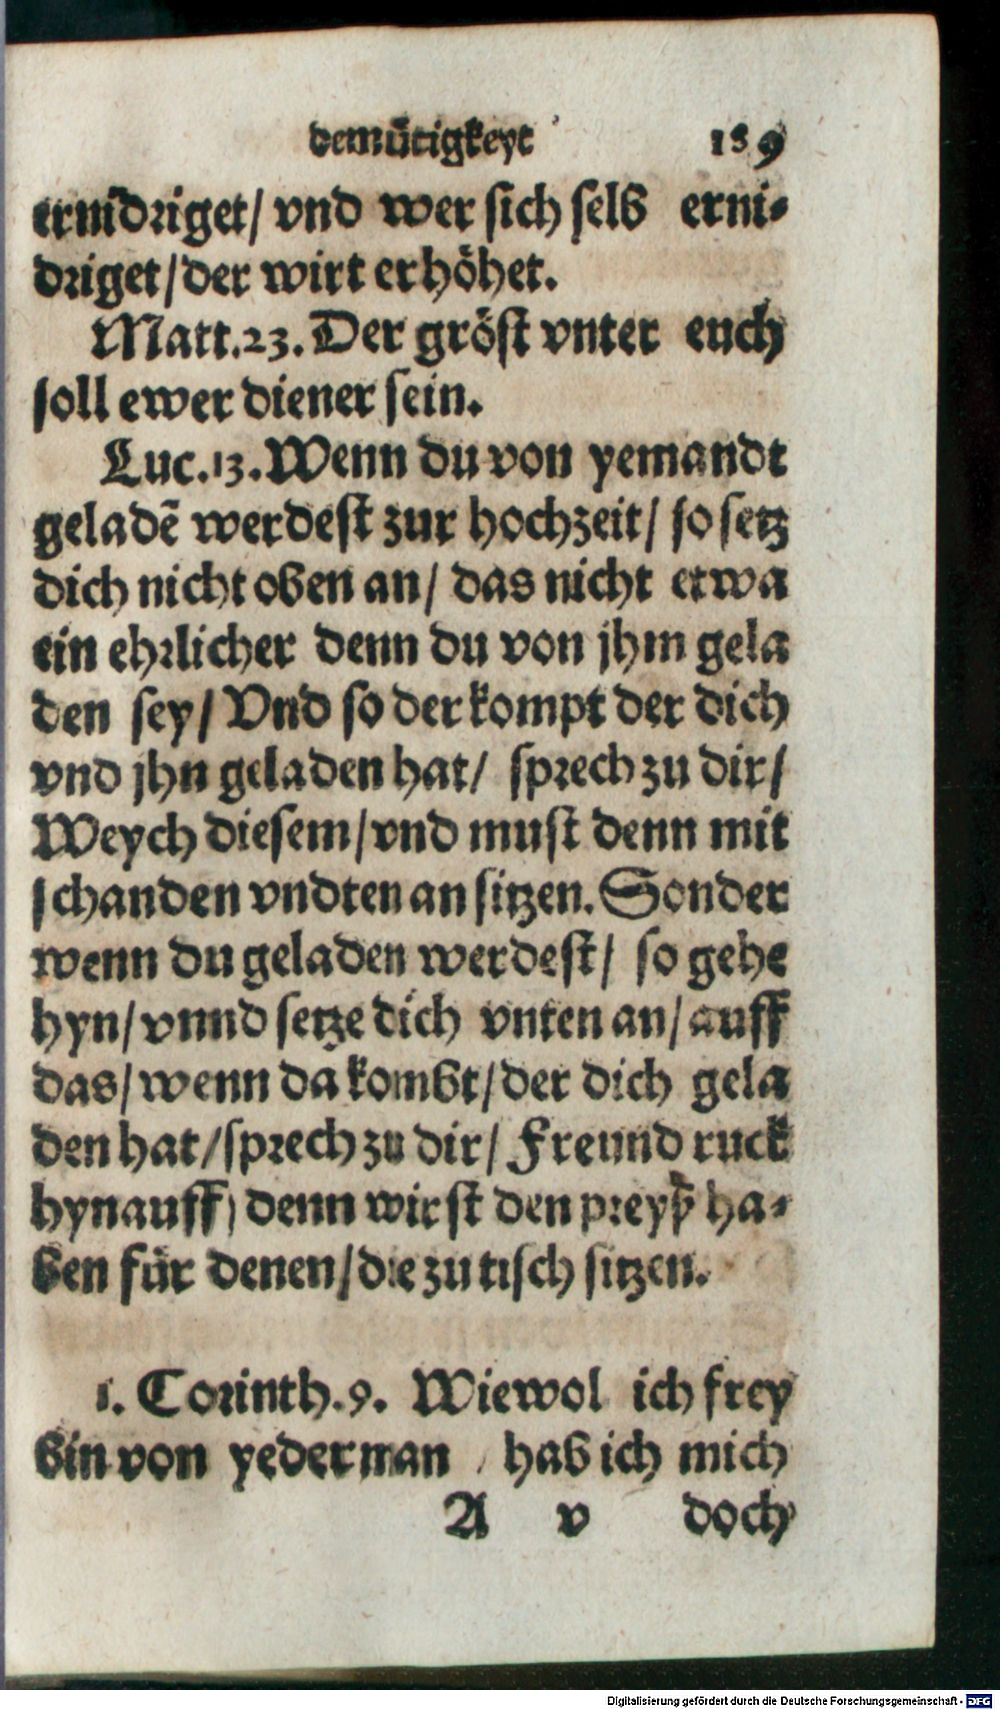 demütigkeyt 189
ernidriget/ vnd wer sich selb erni-
driget/ der wirt erhöhet.
Matt.23. Der gröst vnter euch
soll ewer diener sein.
Luc.13. Wenn du von yemandt
geladẽ werdest zur hochzeit/ so setz
dich nicht oben an/ das nicht etwa
ein ehrlicher denn du von jhm gela
den sey/ Vnd so der kompt der dich
vnd jhn geladen hat/ sprech zu dir/
Weych diesem/ vnd must denn mit
schanden vndten an sitzen. Sonder
wenn du geladen werdest/ so gehe
hyn/ vnnd setze dich vnten an/ auff
das/ wenn da kombt/ der dich gela
den hat/ sprech zu dir/ Freund ruck
hynauff/ denn wirst den preyß ha-
ben für denen/ die zu tisch sitzen.
1. Corinth.9. Wiewol ich frey
bin von yederman / hab ich mich
A v doch
Digitalisierung gefördert durch die Deutsche Forschungsgemeinschaft - DFG